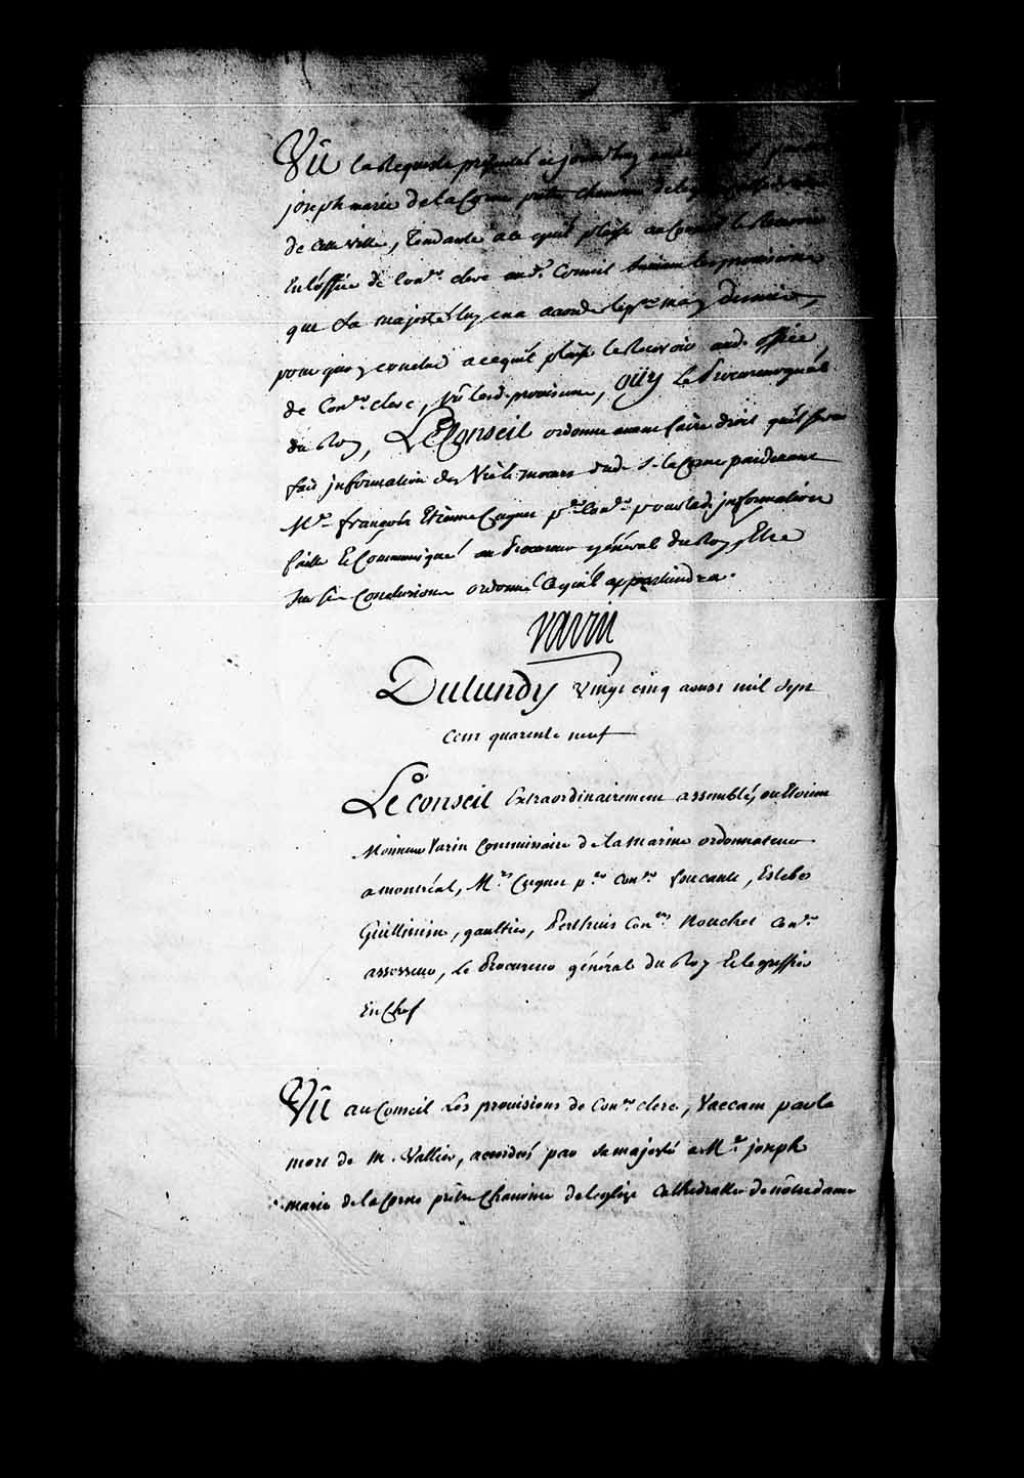 Vû la Requeste presentée ce jourdhuy par
joseph marie de la Corne prêtre chanoine de leglise
de cette ville, tendante a ce quil plaise au Conseil le Recevoir
En l'office de Con.er clerc aud.t Conseil suivant les provisions
que sa majesté luy en a accordé le p.er may dernier,
pourquoy conclud a ce quil plaise le Recevoir aud. office
de Con.er clerc, vû lesd. provisions, oüy le Procureur général
du Roy, Le Conseil ordonne avant faire droit quil sera
fait information des Vie et moeurs dud. S. la Corne pardevant
M.e françois Etienne Cugnet p.er Con.er pour lad. information
faitte et Communiquée au Procureur général du Roy, Etre
Sur ses Conclusions ordonné ce quil appartiendra.
Varin
Du lundy vingt cinq aoust mil sept
cent quarente neuf
Le Conseil Extraordinairement assemblé, ou Etoient
Monsieur Varin Commissaire de la marine ordonnateur
a montréal, M.rs Cugnet p.er Con.er foucault, Estebe
Guillimin, gaultier, Perthuis Con.ers Nouchet Con.er
assesseur, le Procureur général du Roy Et le greffier
En Chef
Vû au Conseil Les provisions de Con.er clerc, Vaccant par la
mort de M. Vallier, accordées par sa majesté a M.e joseph
marie de la Corne prêtre Chanoine de leglise Cathedralle de nôtre dame